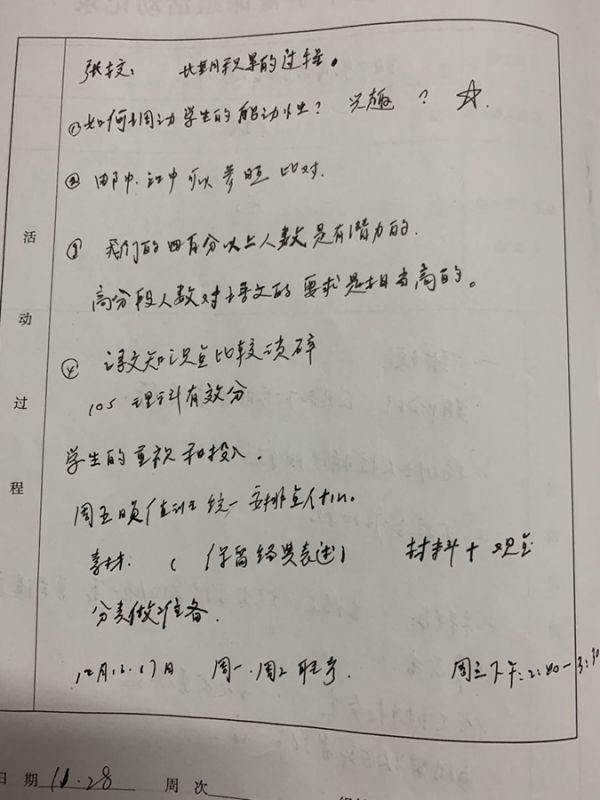 张校: 长期积累的过程。
①如何调动学生的能动性? 兴趣? ☆.
② 初中、高中可以参照比对.
③ 我们的四百分以上人数是有潜力的.
高分段人数对语文的要求是相当高的。
④ 语文知识点比较琐碎
105 理科有效分
学生的重视和投入.
周五晚值班 统一安排
素材. (保留经典表述) 材料+观点
分类做准备.
12月16.17日 周一.周二联考. 周三下午:2:40-3:30
活动过程
日期 11.28 周次